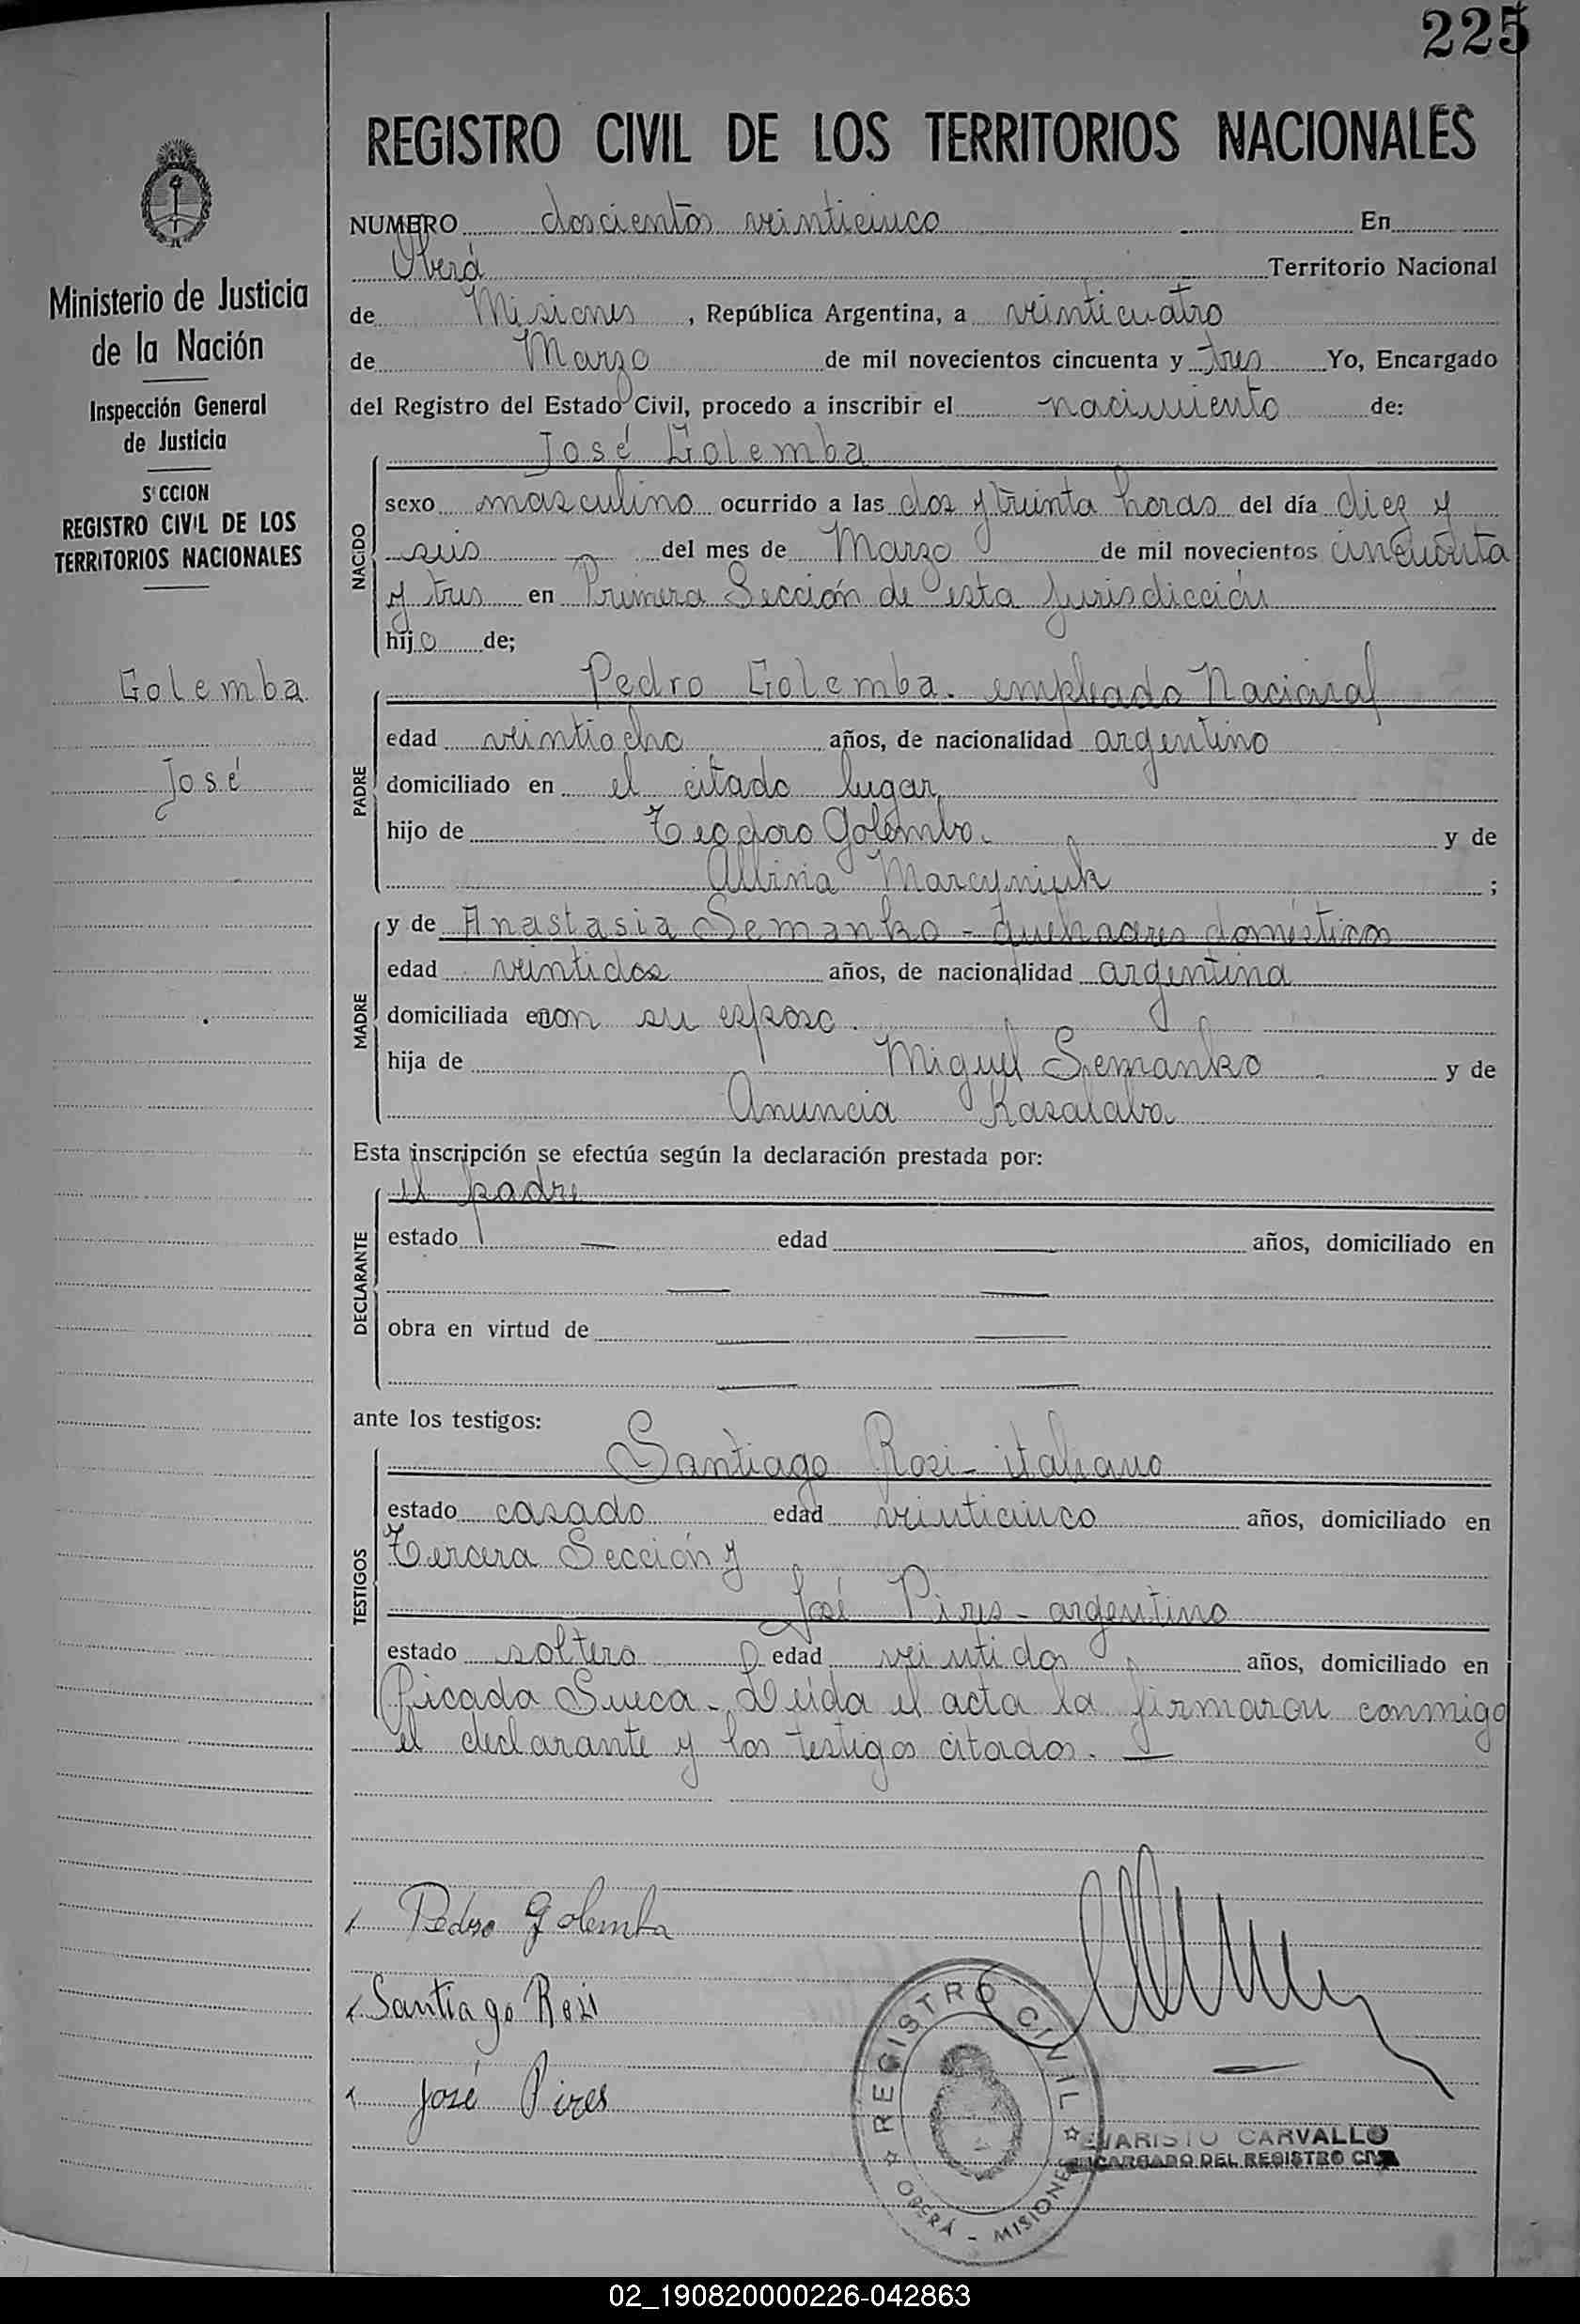 225
REGISTRO CIVIL DE LOS TERRITORIOS NACIONALES
Ministerio de Justicia
de la Nación
Inspección General
de Justicia
S CCION
REGISTRO CIVIL DE LOS
TERRITORIOS NACIONALES
Golemba
José
NUMERO doscientos veinticinco En
Oberá Territorio Nacional
de Misiones, República Argentina, a veinticuatro
de Marzo de mil novecientos cincuenta y tres Yo, Encargado
del Registro del Estado Civil, procedo a inscribir el nacimiento de:
José Golemba
NACIDO
sexo masculino ocurrido a las dos y treinta horas del día diez y
seis del mes de Marzo de mil novecientos cincuenta
y tres en Primera Sección de esta jurisdicción
hijo de;
Pedro Golemba. empleado Nacional
PADRE
edad veintiocho años, de nacionalidad argentino
domiciliado en el citado lugar
hijo de Teodoro Golemba. y de
Albina Marcyniuk ;
y de Anastasia Semanko - quehaceres domésticos
MADRE
edad veintidos años, de nacionalidad argentina
domiciliada con su esposo.
hija de Miguel Semanko y de
Anuncia Kasalaba
Esta inscripción se efectúa según la declaración prestada por:
el padre
DECLARANTE
estado — edad — años, domiciliado en
— —
obra en virtud de — —
— —
ante los testigos:
Santiago Rosi - italiano
TESTIGOS
estado casado edad veinticinco años, domiciliado en
Tercera Sección y
José Pires - argentino
estado soltero edad veintidos años, domiciliado en
Picada Sueca - Leída el acta la firmaron conmigo
el declarante y los testigos citados. —
Pedro Golemba
Santiago Rosi
José Pires
REGISTRO CIVIL
OBERÁ - MISIONES
EVARISTO CARVALLO
ENCARGADO DEL REGISTRO CIVIL
02_190820000226-042863